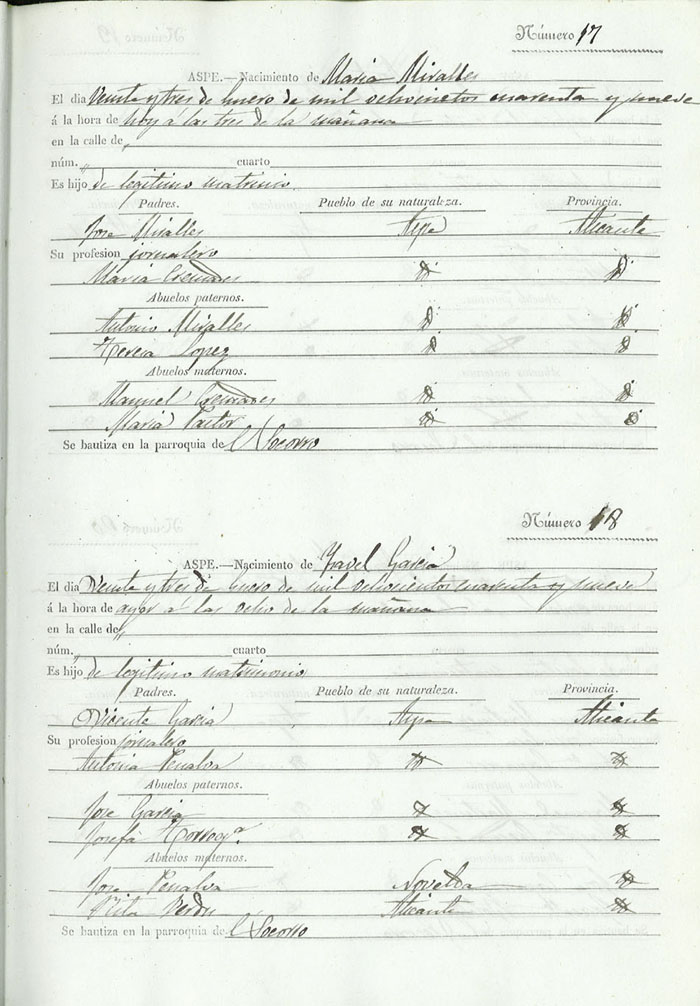 Número 17
ASPE.—Nacimiento de Maria Miralles
El dia Veinte y tres de huero de mil ochocinetos cuarenta y nueve
á la hora de hoy a las tres de la mañana
en la calle de „
núm. „ cuarto
Es hijo de legitimo matrinio.
Padres. Pueblo de su naturaleza. Provincia.
Jose Miralles Aspe Alicante
Su profesion jornalero
Maria Cremades
Abuelos paternos.
Antonio Miralles
Teresa Lopez
Abuelos maternos.
Manuel Cremades
Maria Pastor
Se bautiza en la parroquia de el Socorro
Número 18
ASPE.—Nacimiento de Ysavel Garcia
El dia Veinte y tres de huero de mil ochocientos cuarenta y nueve
á la hora de ayer a las ocho de la mañana
en la calle de „
núm. „ cuarto
Es hijo de legitimo matrimonio
Padres. Pueblo de su naturaleza. Provincia.
Vicente Garcia Aspe Alicante
Su profesion jornalero
Antonia Penalva
Abuelos paternos.
Jose Garcia
Josefa
Abuelos maternos.
Jose Penalva Novelda
Rita Verdu Alicante
Se bautiza en la parroquia de el Socorro